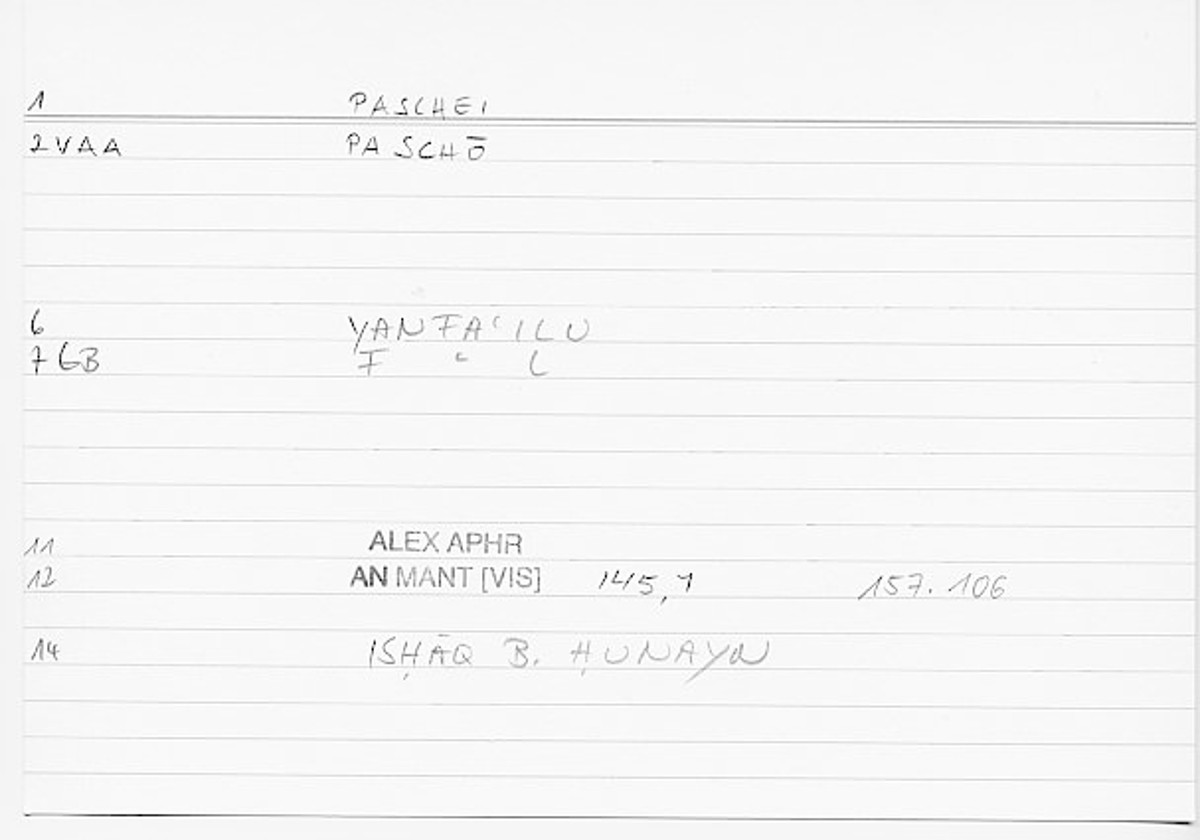 1 PASCHEI
2 VAA PASCHŌ
6 YANFAʿILU
7 GB F ʿ L
11 ALEX APHR
12 AN MANT [VIS] 145,1 157.106
14 ISḤĀQ B. ḤUNAYN